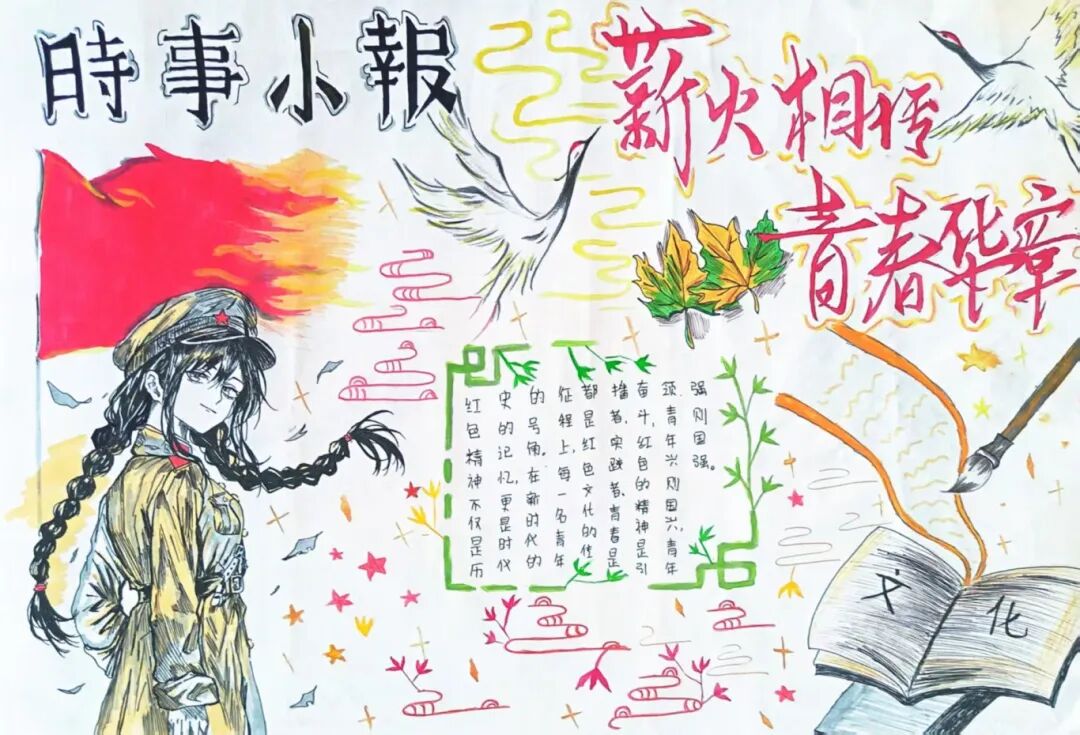 時事小報
薪火相传
青春华章
红色精神不仅是历
史的记忆,更是时代
的号角。在新时代的
征程上,每一名青年
都是红色文化的传
播者、实践者、青春是
奋斗,红色的精神是引
领青年兴则国兴,青年
强则国强。
文化